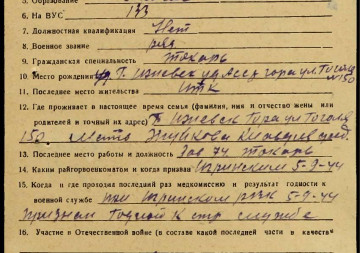 5. Образование
6. На ВУС 133
7. Должностная квалификация Нет
8. Военное звание ряд
9. Гражданская специальность токарь
10. Место рождения г. Ижевск гора ул. Гоголя №150
11. Последнее место жительства
12. Где проживает в настоящее время семья (фамилия, имя и отчество жены или
родителей и точный их адрес) г. Ижевск Гора ул. Гоголя
150. Мать Жуйкова
13. Последнее место работы и должность Зав 74 токарь
14. Каким райгорвоенкоматом и когда призван Игринским 5-9-44
15. Когда и где проходил последний раз медкомиссию и результат годности к
военной службе при Игринском рвк 5-9-44
признан годным к стр службе
16. Участие в Отечественной войне (в составе какой последней части в качест